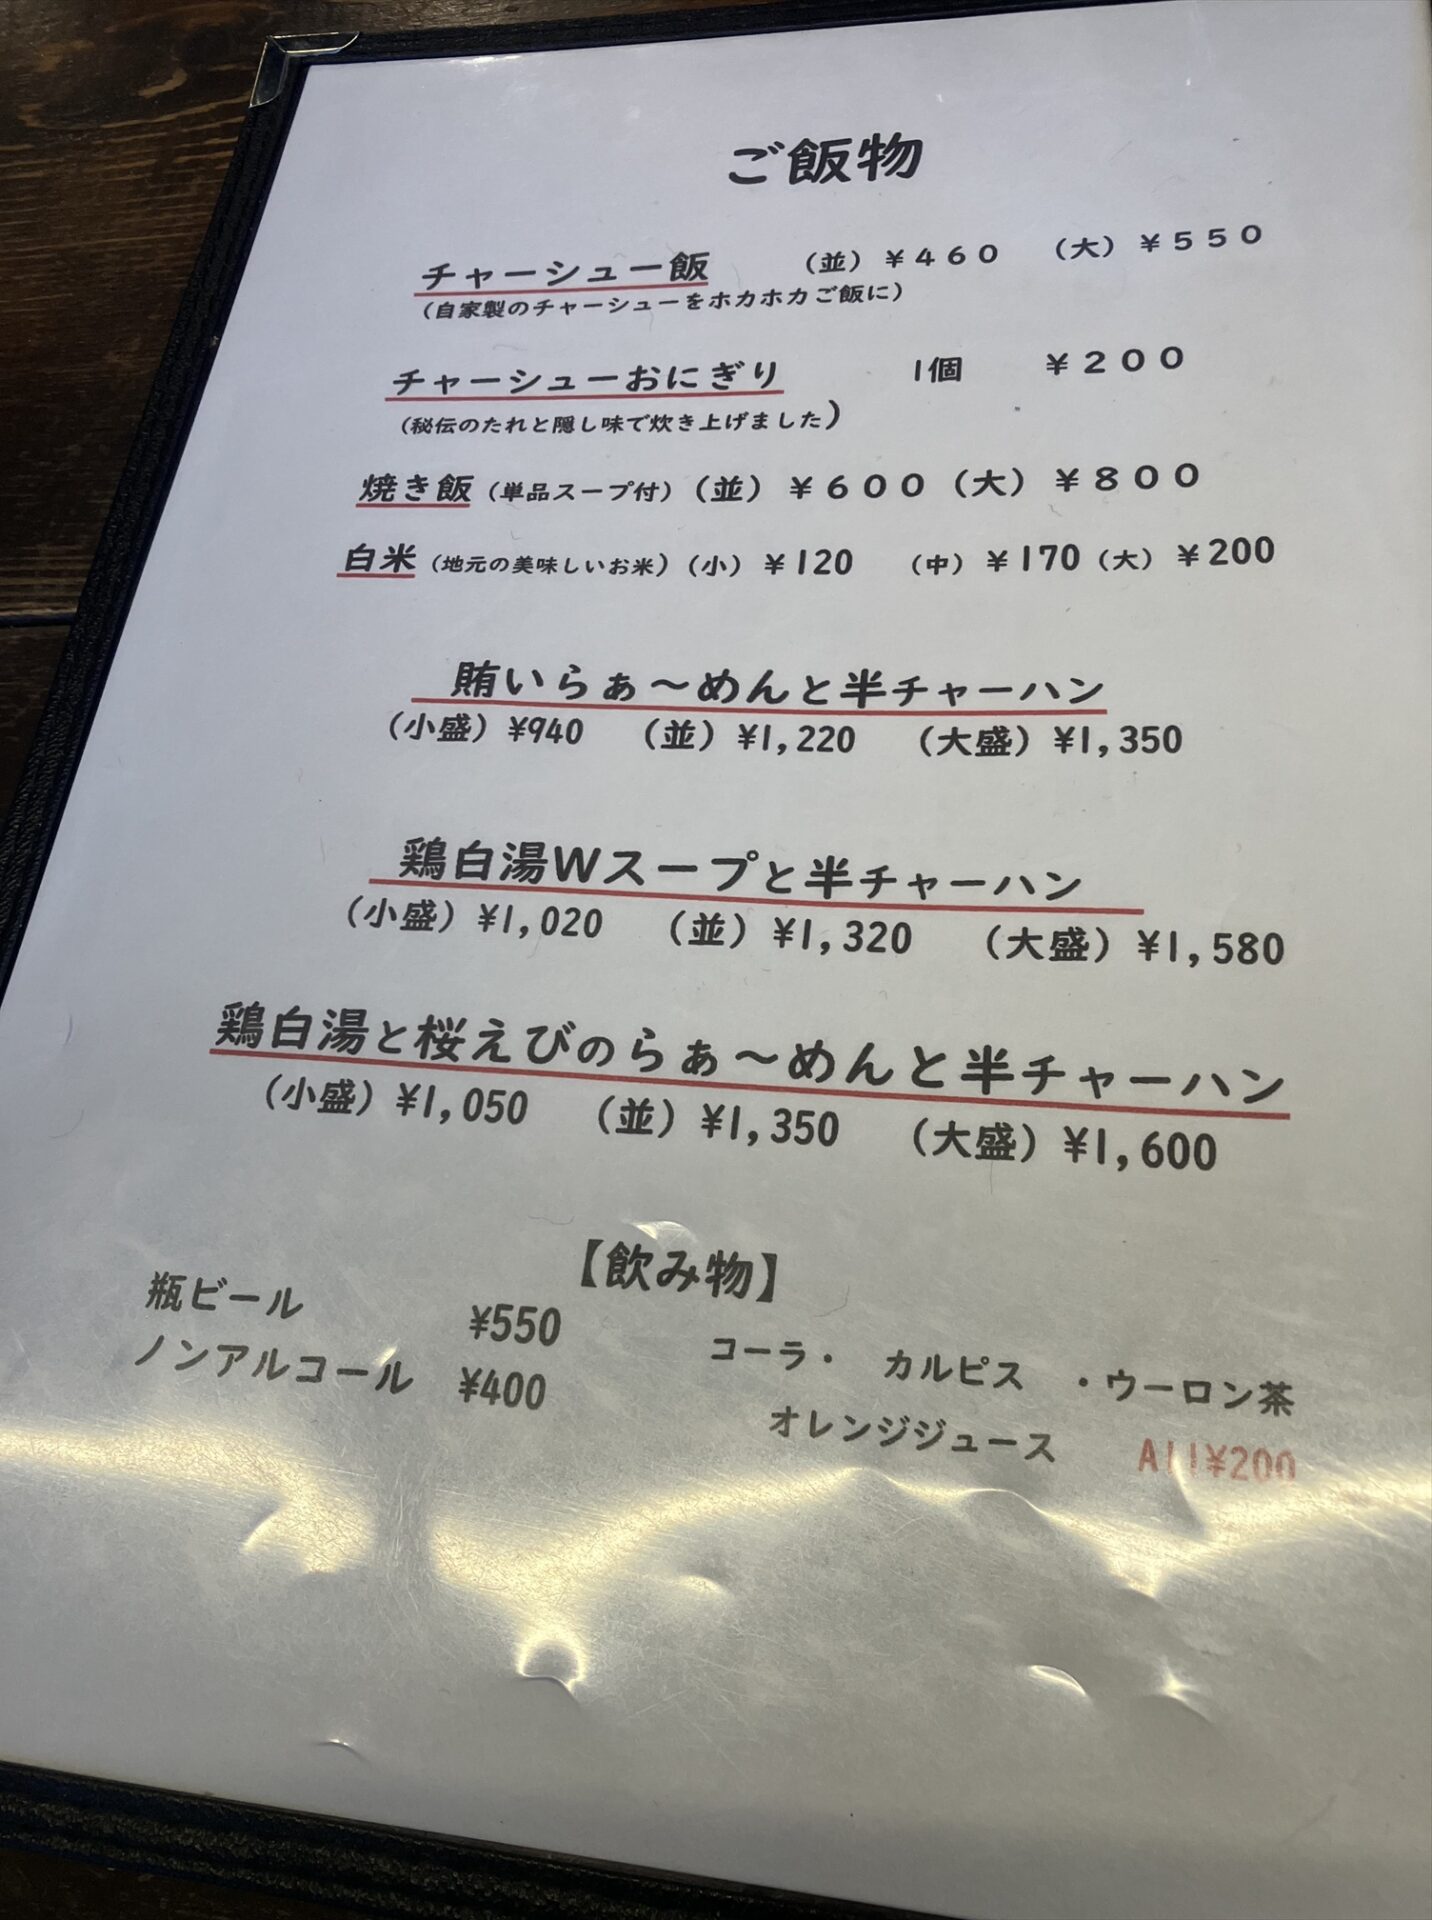 ご飯物
チャーシュー飯 （並）￥４６０ （大）￥５５０
（自家製のチャーシューをホカホカご飯に）
チャーシューおにぎり 1個 ￥２００
（秘伝のたれと隠し味で炊き上げました）
焼き飯（単品スープ付）（並）￥６００（大）￥８００
白米（地元の美味しいお米）（小）￥120 （中）￥170（大）￥200
賄いらぁ～めんと半チャーハン
（小盛）¥940 （並）¥1,220 （大盛）¥1,350
鶏白湯Wスープと半チャーハン
（小盛）¥1,020 （並）¥1,320 （大盛）¥1,580
鶏白湯と桜えびのらぁ～めんと半チャーハン
（小盛）¥1,050 （並）¥1,350 （大盛）¥1,600
【飲み物】
瓶ビール ¥550
ノンアルコール ¥400
コーラ・ カルピス ・ウーロン茶
オレンジジュース All¥200